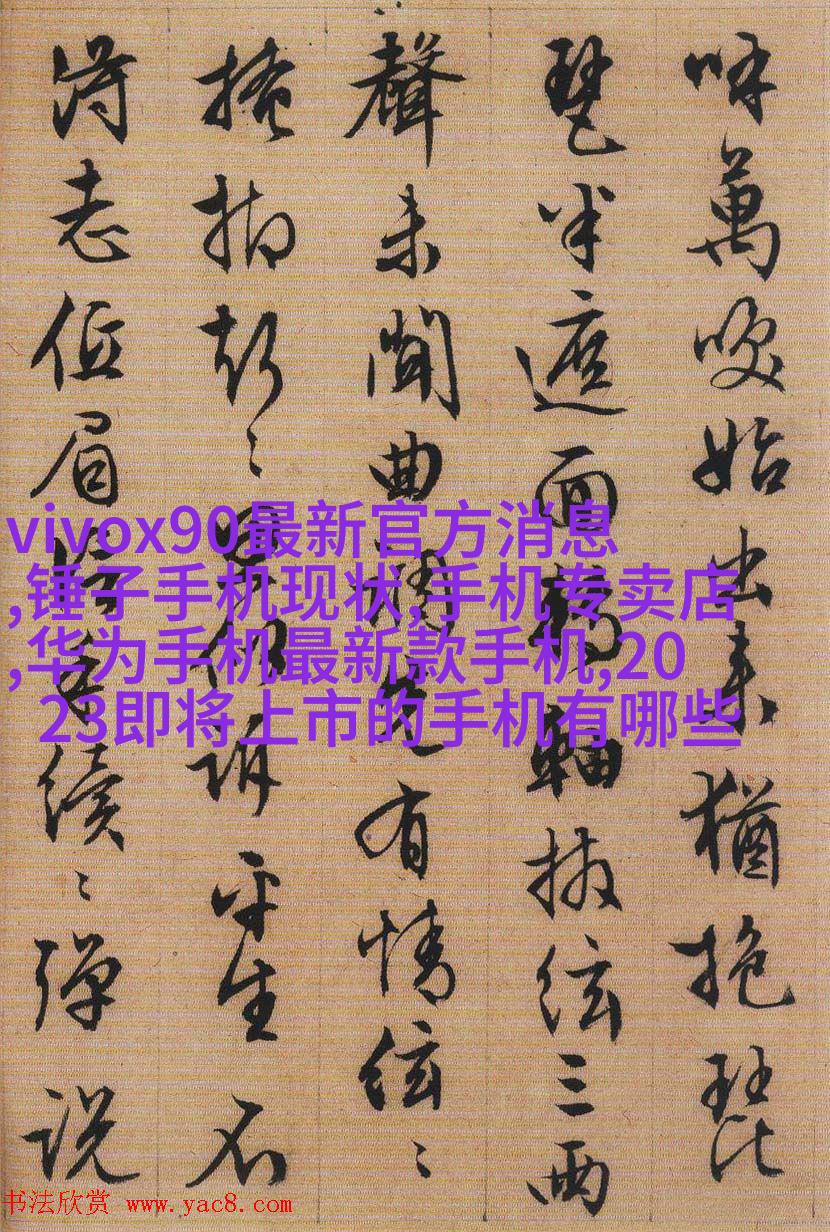 呼萬喚始出来猶抱琵
琶半遮面轉軸撥絃三兩
聲未聞曲調先有情絃〻
掩抑声〻思似訴平生不
得志低眉信手續〻彈説
vivox90最新官方消息
,锤子手机现状,手机专卖店
,华为手机最新款手机,20
23即将上市的手机有哪些
书法欣赏 www.yac8.com